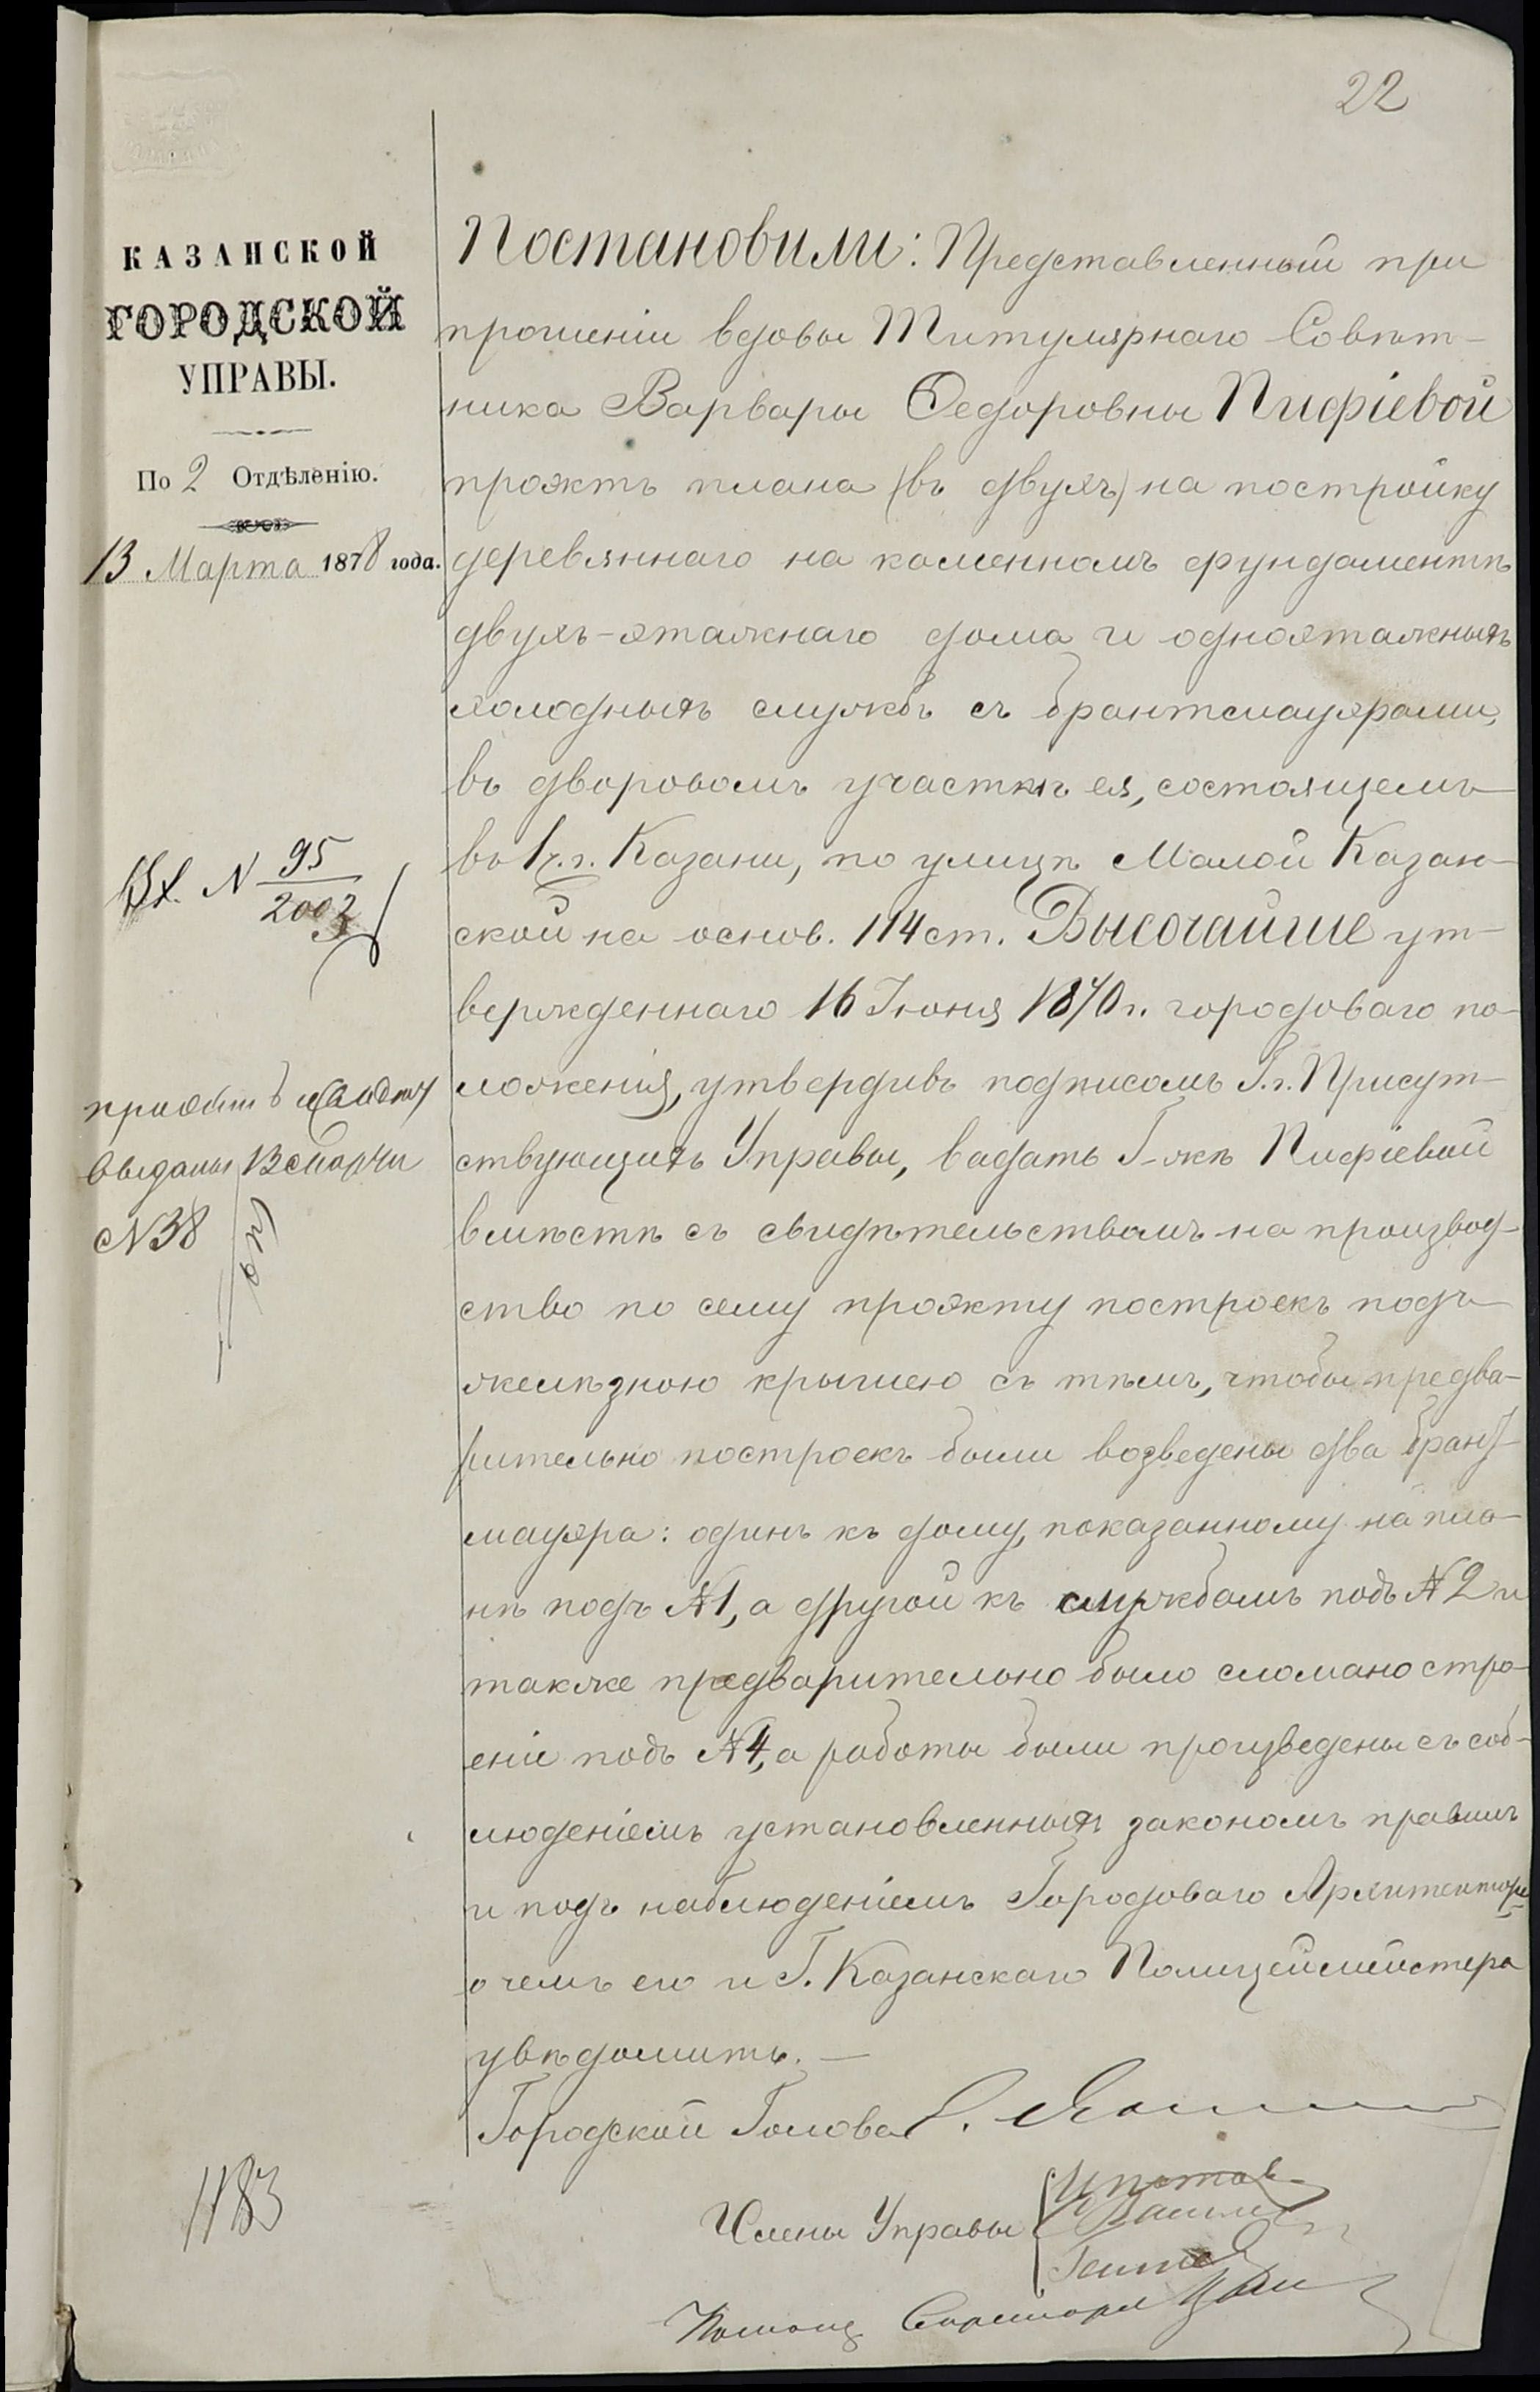 22
КАЗАНСКОЙ
ГОРОДСКОЙ
УПРАВЫ.
По 2 Отдѣленію.
13 Марта 1878 года.
Вх. N 95
2002
выданы
N38
1183
Постановили: Представленный при
прошеніи вдовы Титулярнаго Совѣт-
ника Варвары Ѳедоровны Пифіевой
проэктъ плана (въ двухъ) на постройку
деревяннаго на каменномъ фундаментѣ
двухъ-этажнаго дома и одноэтажныхъ
холодныхъ службъ съ брантмауэрами,
въ дворовомъ участкѣ ея, состоящемъ
въ 1 ч. г. Казани, по улицѣ Малой Казан-
ской на основ. 114 ст. Высочайше ут-
вержденнаго 16 Іюня 1870 г. городоваго по-
ложенія, утвердивъ подписомъ Г.г. Присут-
ствующихъ Управы, выдать Г-жѣ Пифіевой
вмѣстѣ съ свидѣтельствомъ на производ-
ство по сему проэкту построекъ подъ
желѣзною крышею съ тѣмъ, чтобы предва-
рительно построекъ были возведены два бранд-
мауэра: одинъ къ дому, показанному на пла-
нѣ подъ №1, а другой къ службамъ подъ №2 и
также предварительно было сломано стро-
еніе подъ №4, а работы были произведены съ соб-
людéніемъ установленныхъ закономъ правилъ
и подъ наблюденіемъ Городоваго Архитектора,
о чемъ его и Г. Казанскаго Полицеймейстера
увѣдомить. —
Городской Голова
Члены Управы
Помощ Секретаря